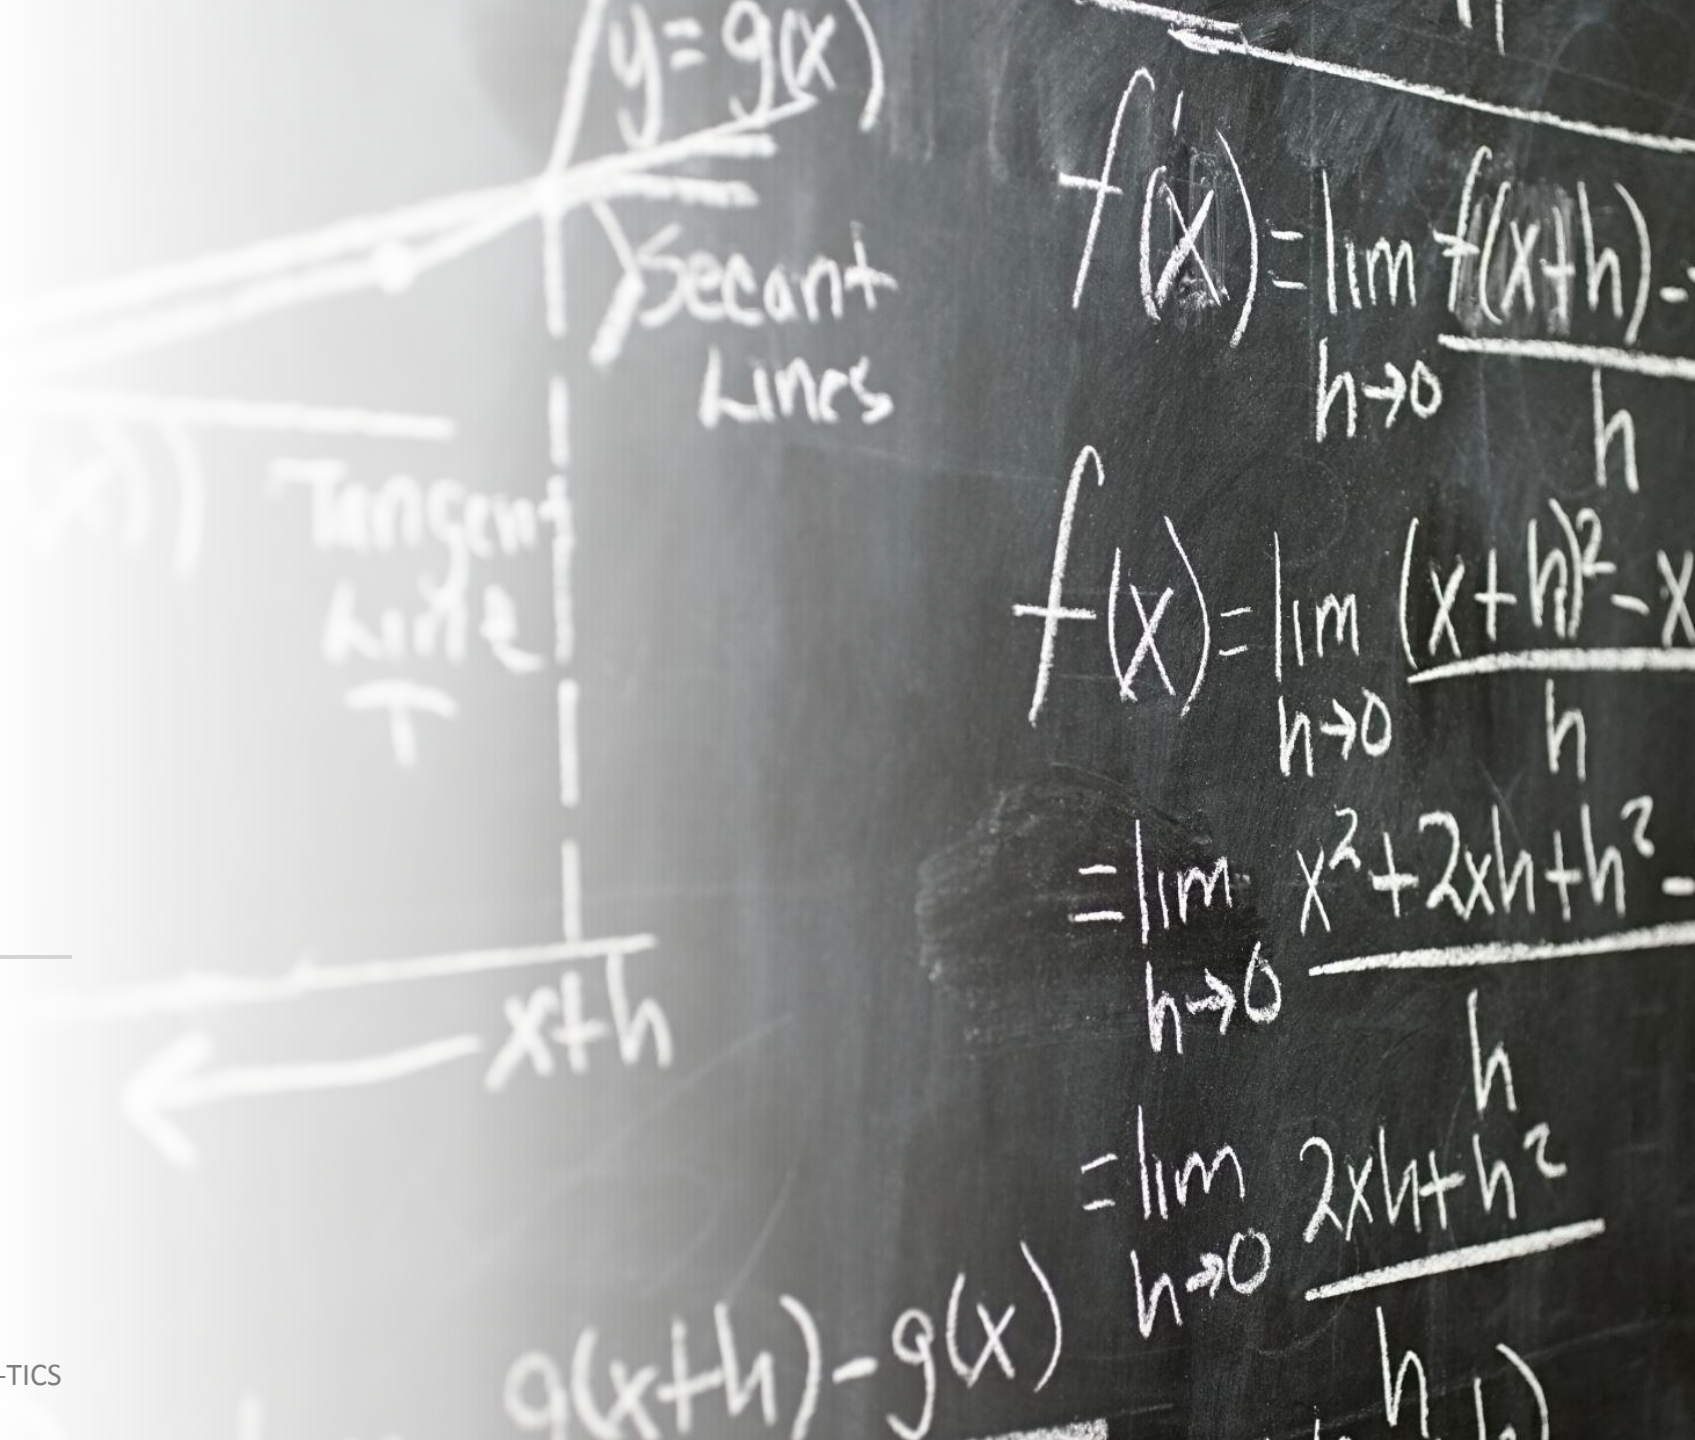 y = g(x)
Secant
Lines
Tangent
Line
T
x+h
g(x+h) - g(x)
f'(x) = lim f(x+h) -
h→0 h
f(x) = lim (x+h)² - x
h→0 h
= lim x² + 2xh + h² -
h→0 h
= lim 2xh + h²
h→0 h
-TICS